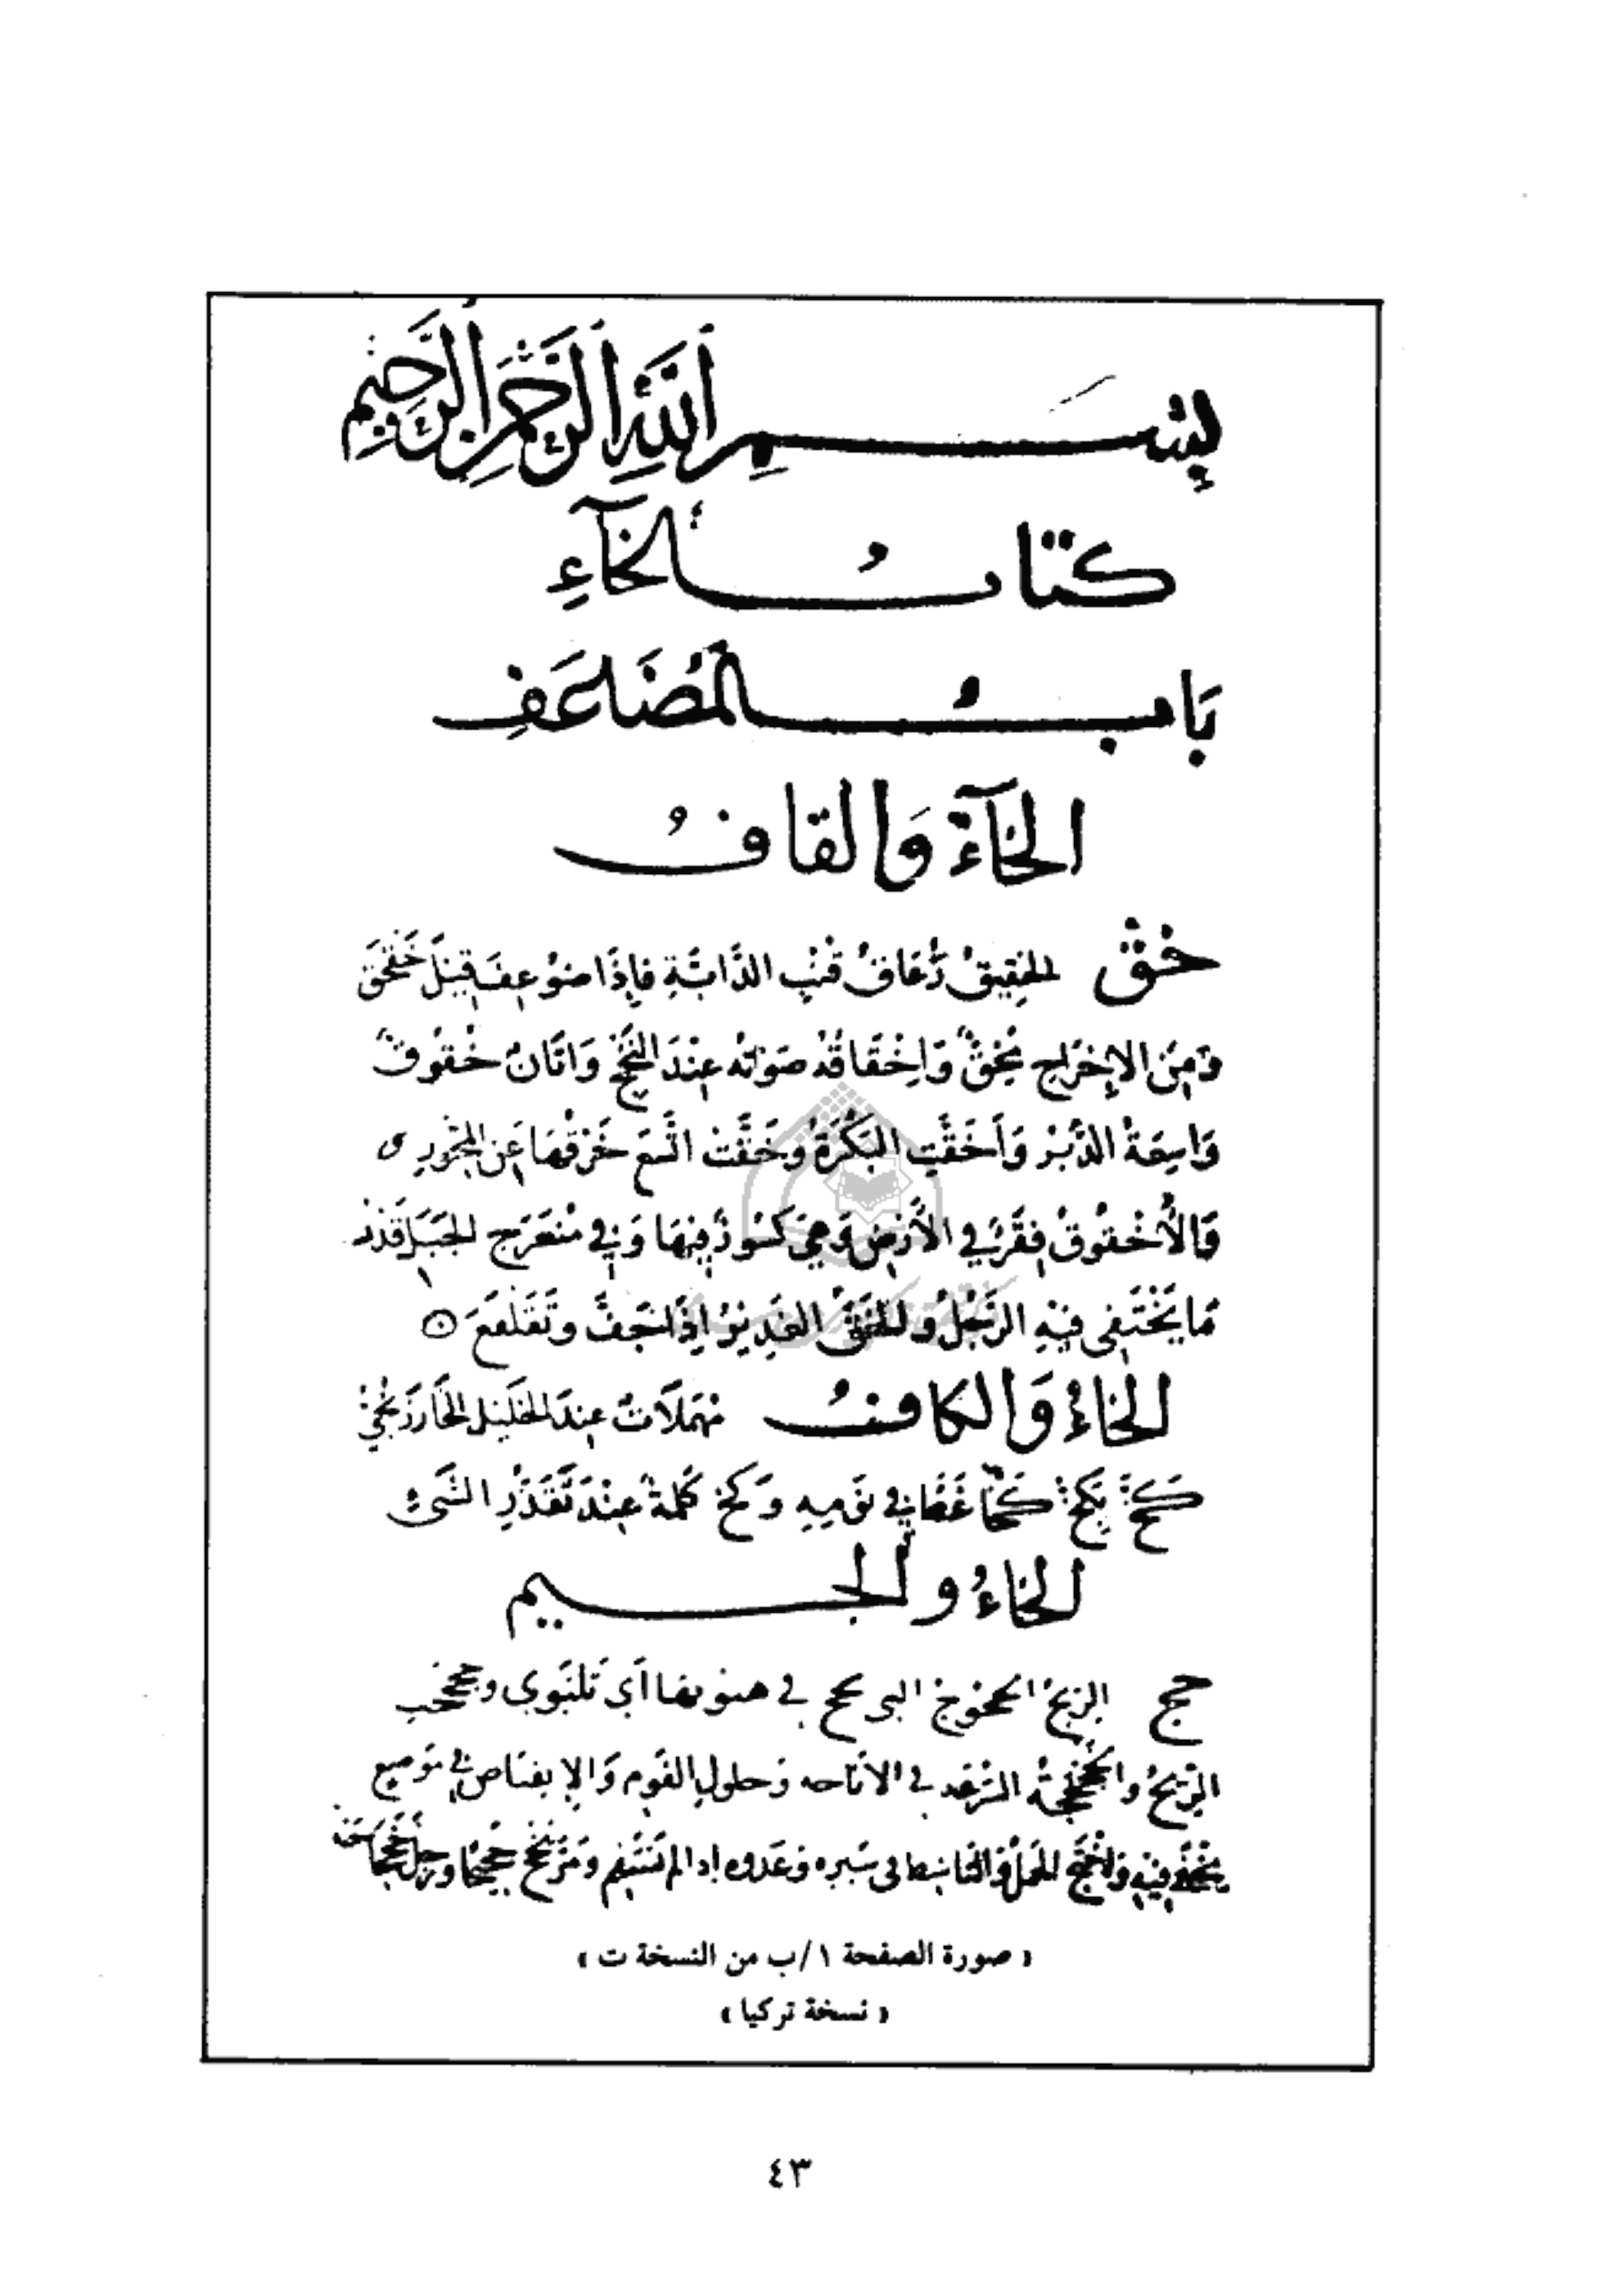 بِسْمِ اللَّهِ الرَّحْمَنِ الرَّحِيمِ
كتابُ الخَآءِ
بَابُ المُضَاعَفِ
الخَآءُ وَالقافُ
خق الخقيقُ زُعَاقُ قُنْبِ الدَّابَّةِ فإِذَا ضوُعِفَ قيلَ خَقْخَقَ
وَمِنَ الإِخْرَاجِ يُخِقُّ وَإِخْقَاقُهُ صَوْتُه عِنْدَ النَّخْجِ وَاتَانٌ خَقُوقٌ
وَاسِعَةُ الدُّبُرِ وَأَخَقَّتِ البَكْرَةُ وَخَقَّتْ اتَّسَعَ خَرْقُهَا عَنِ المِحْوَرِ
وَالأُخْقُوقُ فِقَرٌ فِي الأَرْضِ وَهِيَ كُسُورٌ فِيهَا وَفِي مُنْعَرَجِ الجَبَلِ قَدْرُ
مَا يَخْتَفِي فِيْهِ الرَّجُلُ وَالخَقُّ الغَدِيْرُ إِذَا جَفَّ وَتَقَلْفَعَ
الخَاءُ وَالكافُ مُهمَلَاتٌ عِندَ الخَلِيْلِ الخَارْزَنْجِيُّ
كَخَّ يَكِخُّ كَخًّا غَطَّ فِي نَومِهِ وَكِخْ كَلِمَةٌ عِنْدَ تَقَذُّرِ الشَّيْءِ
الخَاءُ والجيم
خج الرِّيحُ الخجوجُ التي تخج في هبوبها أَي تَلْتَوِي وخجخجت
الرِّيْحُ وَالخَجْخَجَةُ السُّرْعَة في الانَاخة وَحلول القَومِ وَالإِنقبَاض في مَوضِع
يُخْفَى فيهِ وَاخْتَجَّ الجمَلُ وَالناشط في سَيره وَعَدوه إذا لم يَسْتَقِم وَمَرَّ يَخُجُّ خَجِيْجًا وَرجُلٌ
« صورة الصفحة ١/ب من النسخة ت »
« نسخة تركيا »
٤٣